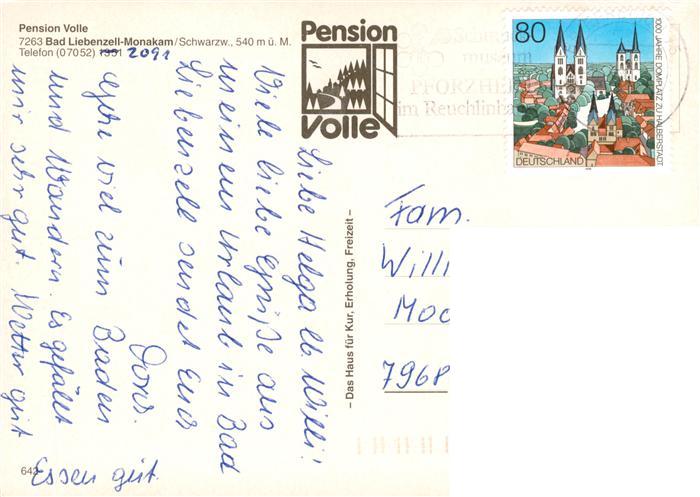 Pension Volle
7263 Bad Liebenzell-Monakam/Schwarzw., 540 m ü. M.
Telefon (07052) 1351 2091
Pension
Volle
museum
PFORZHEIM
im Reuchlinhaus
80
1000 JAHRE DOMPLATZ ZU HALBERSTADT
DEUTSCHLAND
Liebe Helga lb Willi!
Viele liebe Grüße aus
meinem Urlaub in Bad
Liebenzell sendet Euch
Doris.
Gehe viel zum Baden
und Wandern. Es gefällt
mir sehr gut. Wetter gut
Essen gut.
– Das Haus für Kur, Erholung, Freizeit –
Fam.
Willi
Moc
7968
642